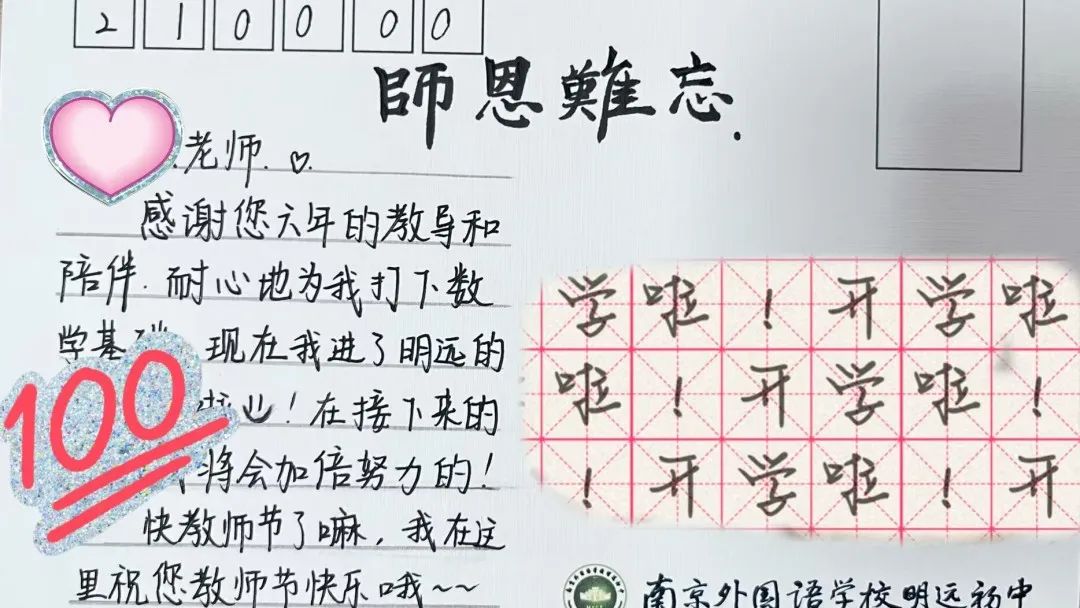 210000
師恩難忘.
老师.
感谢您六年的教导和
陪伴.耐心地为我打下数
学基础 现在我进了明远的
！在接下来的
将会加倍努力的！
快教师节了嘛，我在这
里祝您教师节快乐哦~~
学啦！开学啦
啦！开学啦！
！开学啦！开
南京外国语学校明远初中